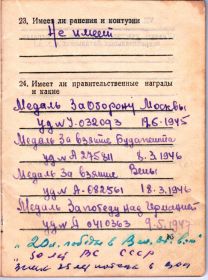 23. Имеет ли ранения и контузии
Не имеет
24. Имеет ли правительственные награды
и какие
Медаль За Оборону Москвы
уд № Э.032093 17.6.1945
Медаль За взятие Будапешта
уд № А 27584 8.3.1946
Медаль За взятие Вены
уд № А-082561 18.3.1946
Медаль За победу над Германией
уд № 0410363 9.5.1947
"20 л. победы в
"50 лет ВС СССР